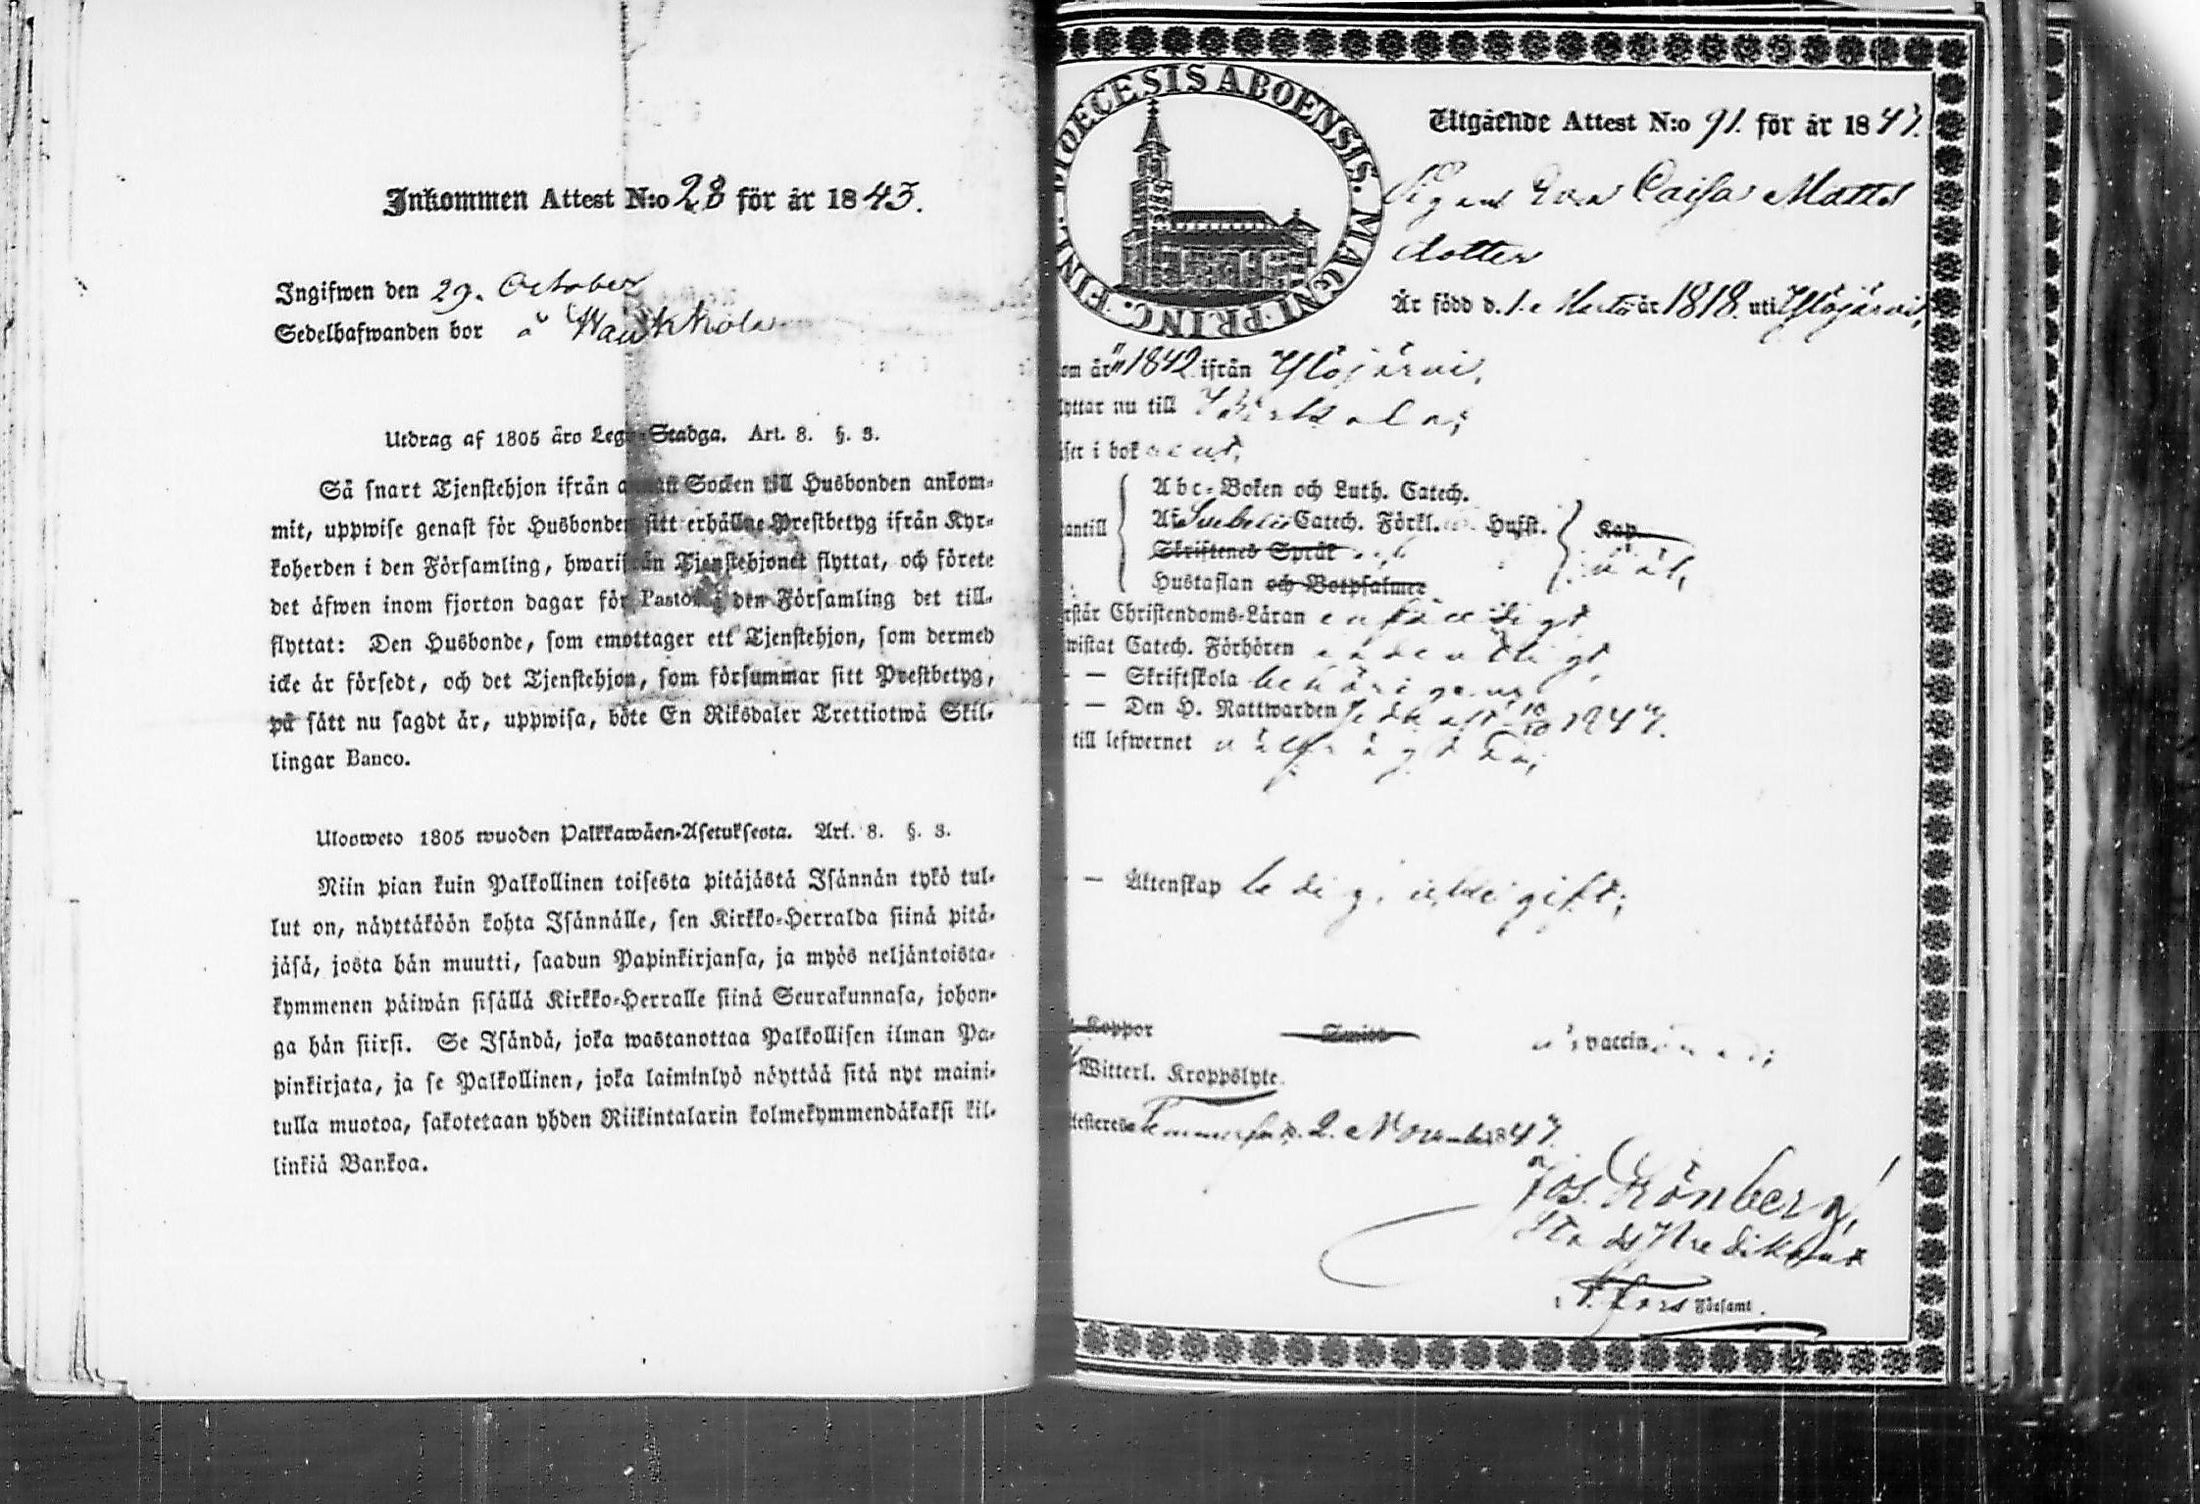 Inkommen Attest N:o 28 för år 1843.
Ingifwen den 29. October
Sedelhafwanden bor å Haukkola
Utdrag af 1805 års Lego-Stadga. Art. 8. §. 3.
Så snart Tjenstehjon ifrån annan Socken till Husbonden ankom-
mit, uppwise genast för Husbonden sitt erhållne Prestbetyg ifrån Kyr-
koherden i den Församling, hwarifrån Tjenstehjonet flyttat, och förete
det äfwen inom fjorton dagar för Pastor i den Församling det till-
flyttat: Den Husbonde, som emottager ett Tjenstehjon, som dermed
icke är försedt, och det Tjenstehjon, som försummar sitt Prestbetyg,
på sätt nu sagdt är, uppwisa, böte En Riksdaler Trettiotwå Skil-
lingar Banco.
Ulosweto 1805 wuoden Palkkawäen-Asetuksesta. Art. 8. §. 3.
Niin pian kuin Palkollinen toisesta pitäjästä Isännän tykö tul-
lut on, näyttäköön kohta Isännälle, sen Kirkko-Herralda siinä pitä-
jäsä, josta hän muutti, saadun Papinkirjansa, ja myös neljäntoista-
kymmenen päiwän sisällä Kirkko-Herralle siinä Seurakunnasa, johon-
ga hän siirsi. Se Isändä, joka wastanottaa Palkollisen ilman Pa-
pinkirjata, ja se Palkollinen, joka laiminlyö näyttää sitä nyt maini-
tulla muotoa, sakotetaan yhden Riikintalarin kolmekymmendäkaksi kil-
linkiä Bankoa.
DIOECESIS ABOENSIS. MAGNI PRINC. FINL.
Utgående Attest N:o 91. för år 1847.
Pigan Eva Caisa Matts
dotter
Är född d. 1. Martii år 1818. uti Ylöjärvi,
om år 1842 ifrån Ylöjärvi,
yttar nu till Pirkala;
ser i bok
antill
Abc-Boken och Luth. Catech.
Af Svebelii Catech. Förkl. Husst.
Kap
Skriftenes Språk
Hustaflan och Botpsalmer
rstår Christendoms-Läran enfaldigt
wistat Catech. Förhören ordentligt,
— — Skriftskola behörigen,
— — Den H. Nattwarden sednast 10/10 1847.
till lefwernet välfrägdad;
— — Äktenskap ledig, till gift;
Koppor Smitt vaccin
Witterl. Kroppslyte.
ttesteres Tammerfors 2. November 1847.
Jos. Grönberg,
Stads Predikant
T:fors Församl.